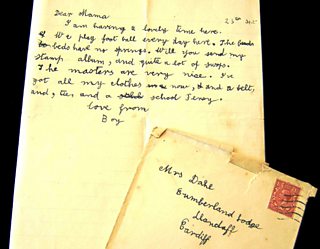 23rd Sept
Dear Mama
I am having a lovely time here.
We play foot ball every day here. The beds
beds have no springs. Will you send my
stamp album, and quite a lot of swops.
The masters are very nice. I've
got all my clothes now, and a belt,
and, tie, and a school Jersey.
love from
Boy
Mrs Dahl
Cumberland Lodge
Llandaff
Cardiff